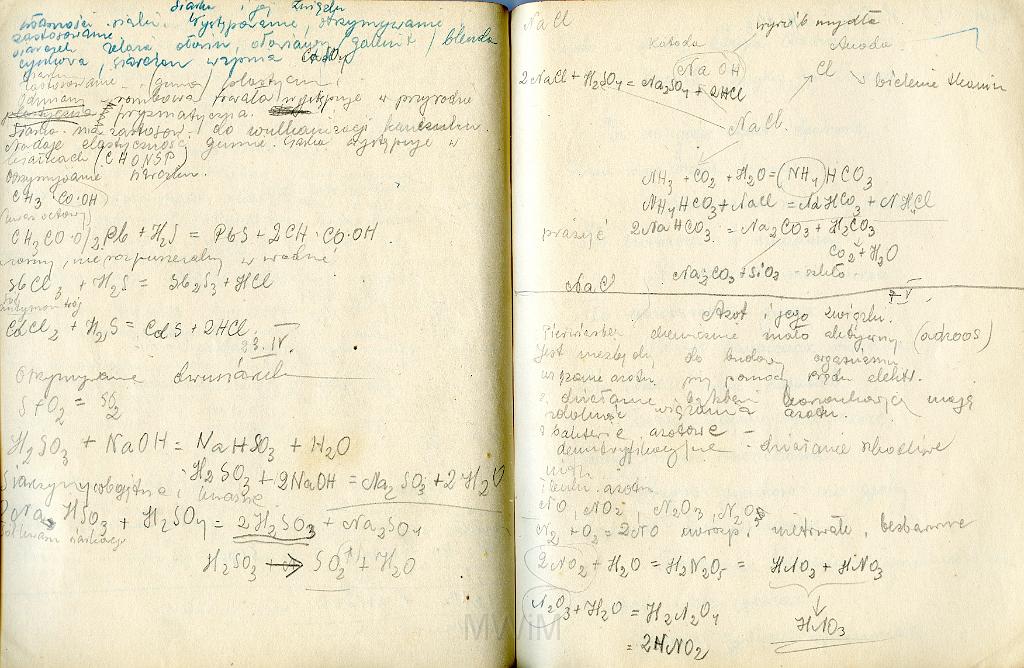 Siarka i jej związki
własności siarki. Występowanie, otrzymywanie
zastosowanie
siarczek żelaza, ołowiu, ołowiany galenit / blenda
cynkowa, siarczan wapnia CaSO4
zastosowanie (guma) plastyczna
rombowa trwała występuje w przyrodzie
plastyczna pryzmatyczna.
Siarka ma zastosow. do wulkanizacji kauczuku.
Nadaje elastyczność gumie. Siarka występuje w
białkach (CHONSP)
Otrzymywanie
CH3 CO·OH
kwas octowy
CH3CO·O/2Pb + H2S = PbS + 2CH3·CO·OH
czarny, nierozpuszczalny w wodzie
SbCl3 + H2S = Sb2S3 + HCl
CdCl2 + H2S = CdS + 2HCl.
23.IV.
Otrzymywanie dwusiarek
S + O2 = SO2
H2SO3 + NaOH = NaHSO3 + H2O
H2SO3 + 2NaOH = Na2SO3 + 2H2O
Siarczyny obojętne i kwaśne
2Na HSO3 + H2SO4 = 2H2SO3 + Na2SO4
H2SO3 → SO2↑ + H2O
NaCl wyrób mydła
Katoda Anoda
2NaCl + H2SO4 = Na2SO4 + 2HCl
NaOH Cl bielenie tkanin
NaCl.
NH3 + CO2 + H2O = (NH4)HCO3
NH4HCO3 + NaCl = NaHCO3 + NH4Cl
prażyć 2NaHCO3 = Na2CO3 + H2CO3
CO2 + H2O
Na2CO3 + SiO2 - szkło
NaCl
7 V
Azot i jego związki.
Pierwiastek chemicznie mało aktywny (odzoos)
Jest niezbędny do budowy organizmu
wiązanie azotu przy pomocy prądu elektr.
działanie bakterii mają
zdolność wiązania azotu.
bakterie azotowe -
denitryfikacyjne - działanie szkodliwe
tlenki azotu
NO, NO2, N2O3, N2O5
N2 + O2 = 2NO nietrwałe, bezbarwne
2NO2 + H2O = H2N2O5 = HNO2 + HNO3
N2O3 + H2O = H2N2O4
HNO3
= 2HNO2
MWiM